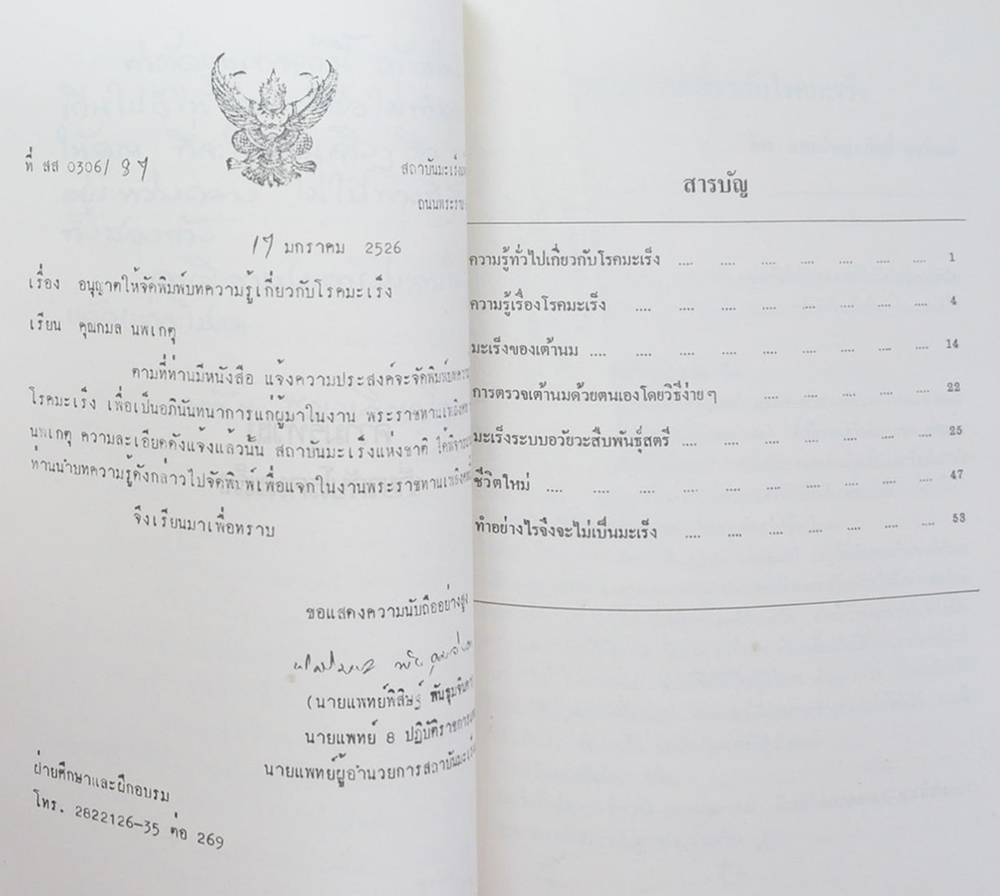 ที่ สส 0306/ 97
สถาบันมะเร็ง
ถนนพระราม
17 มกราคม 2526
เรื่อง อนุญาตให้จัดพิมพ์บทความรู้เกี่ยวกับโรคมะเร็ง
เรียน คุณกมล นพเกตุ
ตามที่ท่านมีหนังสือ แจ้งความประสงค์จะจัดพิมพ์บทความ
โรคมะเร็ง เพื่อเป็นอภินันทนาการแก่ผู้มาในงาน พระราชทานเพลิงศพ
นพเกตุ ความละเอียดดังแจ้งแล้วนั้น สถาบันมะเร็งแห่งชาติ ได้พิจารณา
ท่านนำบทความรู้ดังกล่าวไปจัดพิมพ์เพื่อแจกในงานพระราชทานเพลิงศพ
จึงเรียนมาเพื่อทราบ
ขอแสดงความนับถืออย่างสูง
(นายแพทย์พิสิษฐ์ พันธุมจินดา
นายแพทย์ 8 ปฏิบัติราชการแทน
นายแพทย์ผู้อำนวยการสถาบันมะเร็ง
ฝ่ายศึกษาและฝึกอบรม
โทร. 2822126-35 ต่อ 269
สารบัญ
ความรู้ทั่วไปเกี่ยวกับโรคมะเร็ง .... .... .... .... .... .... .... 1
ความรู้เรื่องโรคมะเร็ง .... .... .... .... .... .... .... 4
มะเร็งของเต้านม .... .... .... .... .... .... .... .... 14
การตรวจเต้านมด้วยตนเองโดยวิธีง่าย ๆ .... .... .... .... 22
มะเร็งระบบอวัยวะสืบพันธุ์สตรี .... .... .... .... .... .... 25
ชีวิตใหม่ .... .... .... .... .... .... .... .... .... 47
ทำอย่างไรจึงจะไม่เป็นมะเร็ง .... .... .... .... .... .... 53